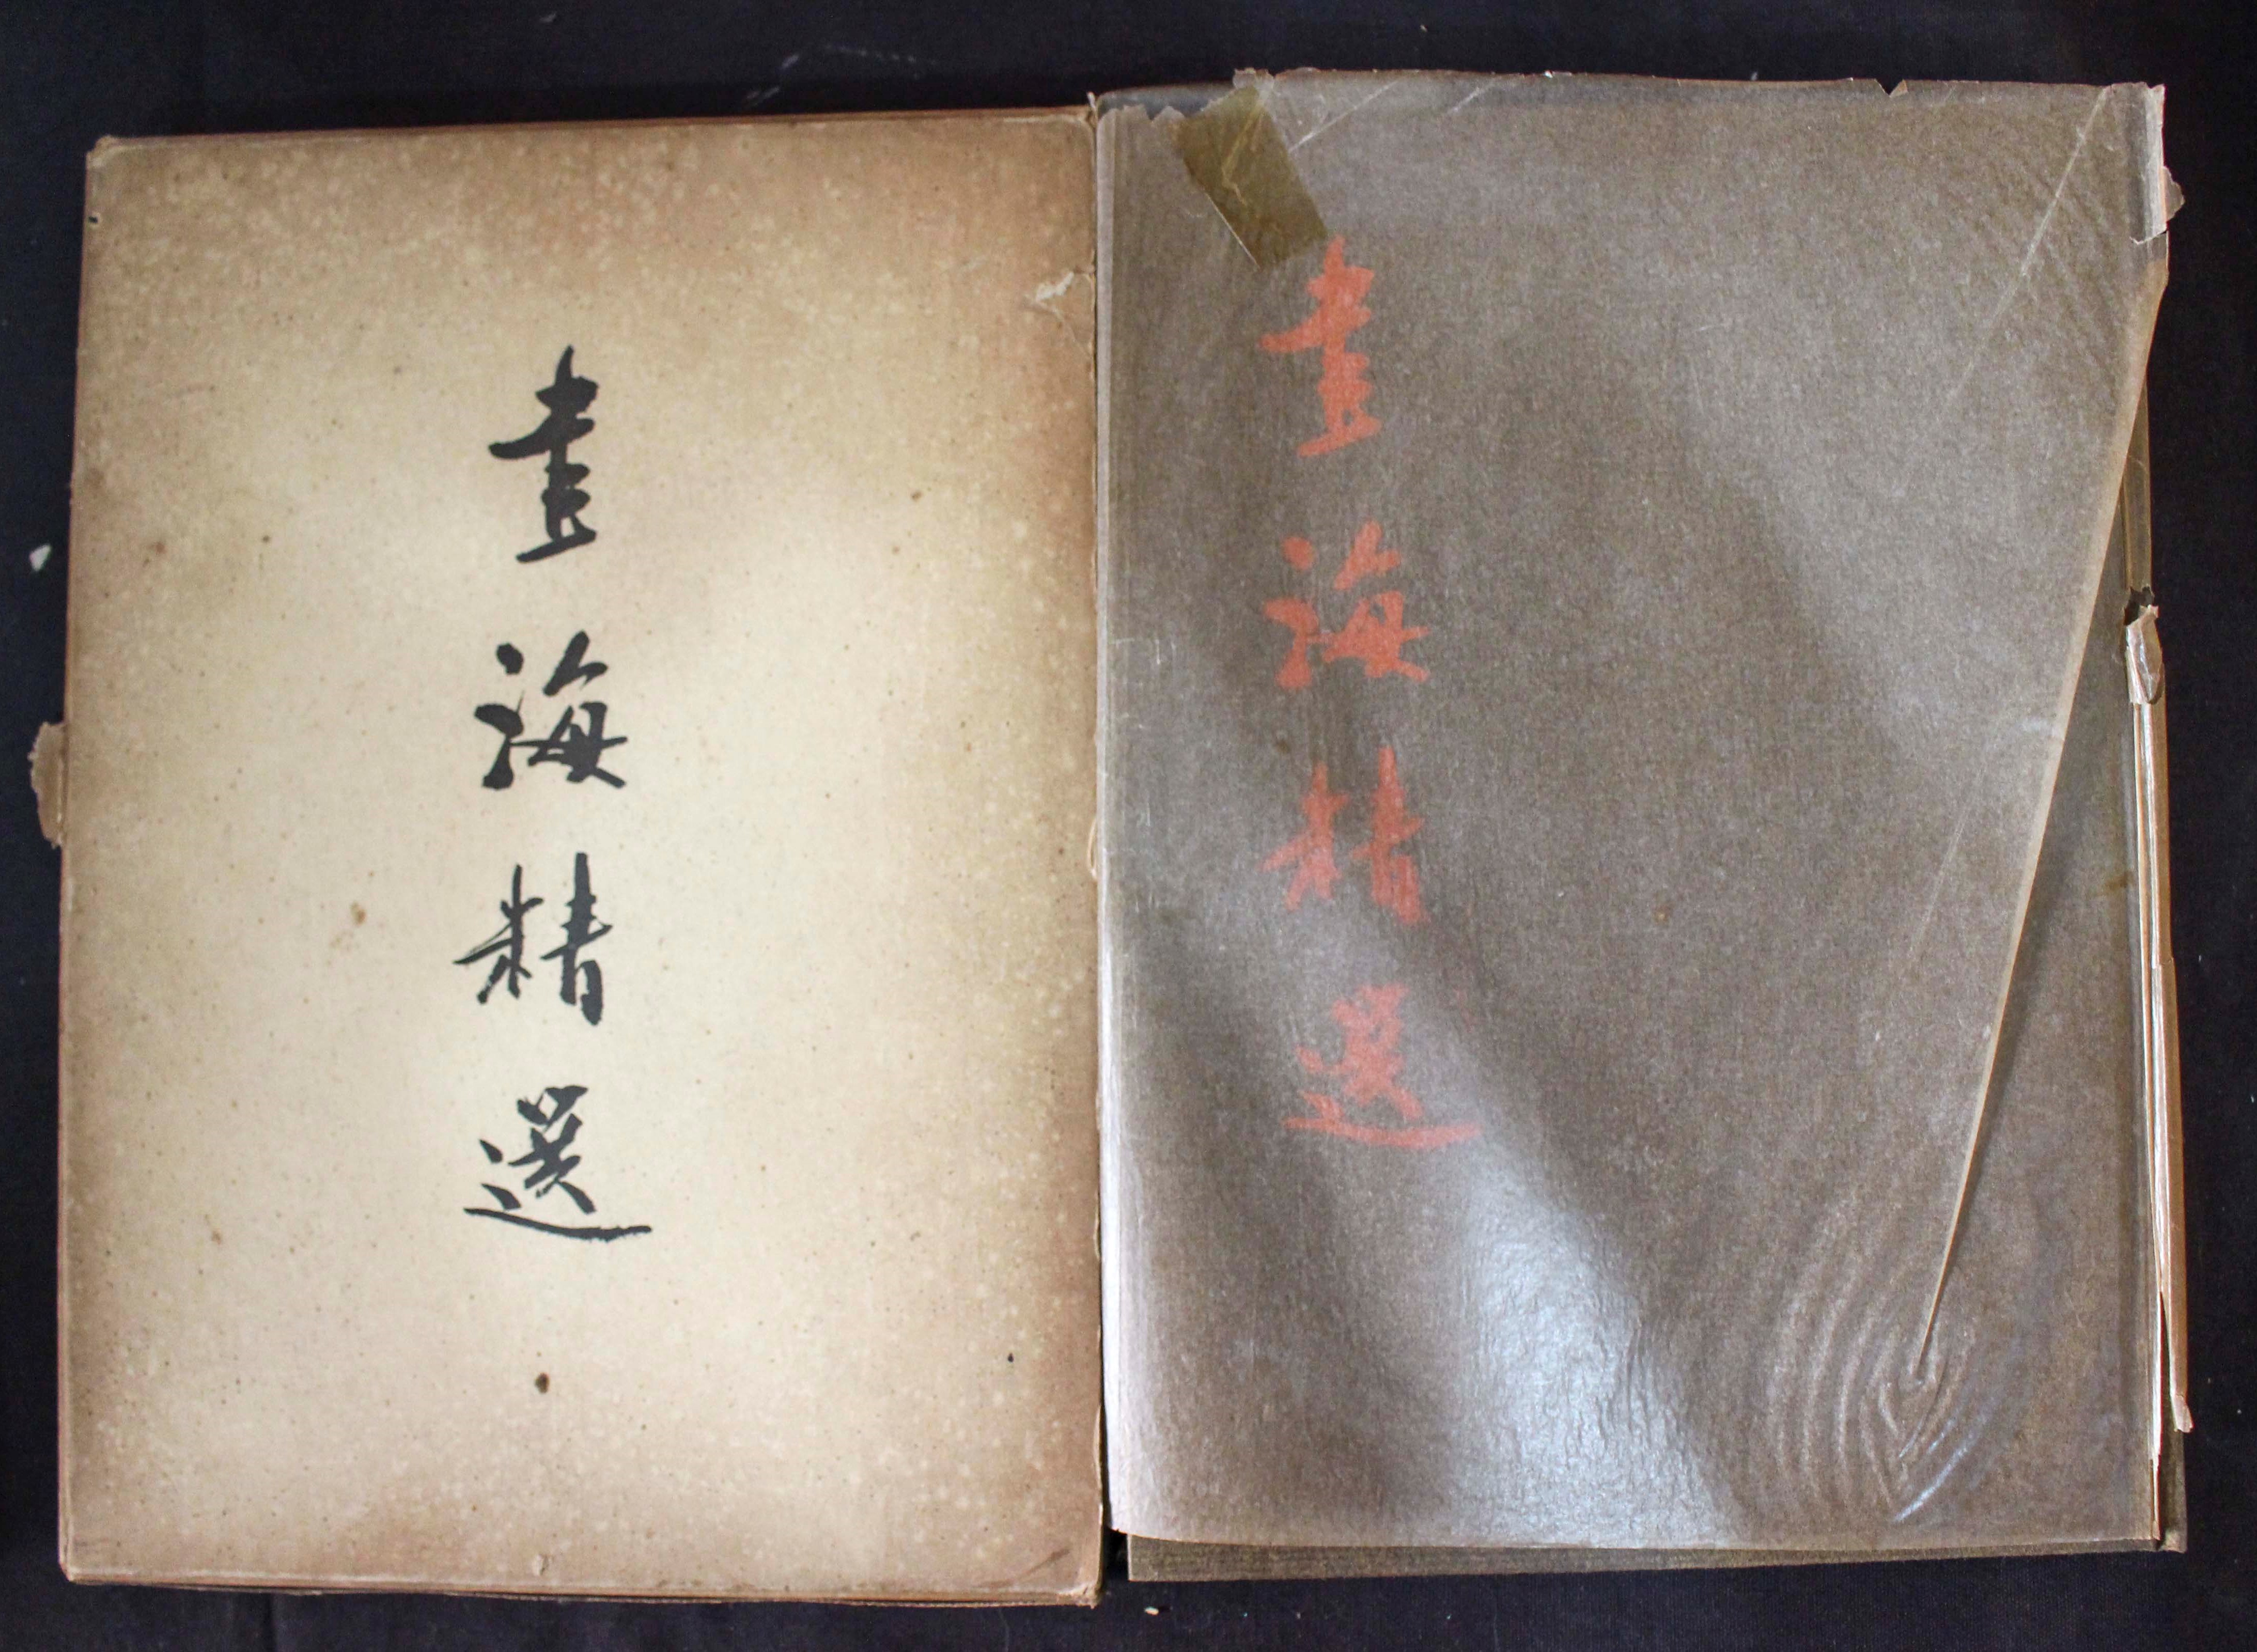 畫海精選
畫海精選